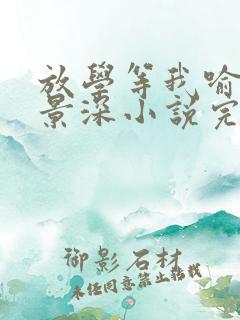 放學等我喻
景深小説完
御影石材
未经同意禁止转载